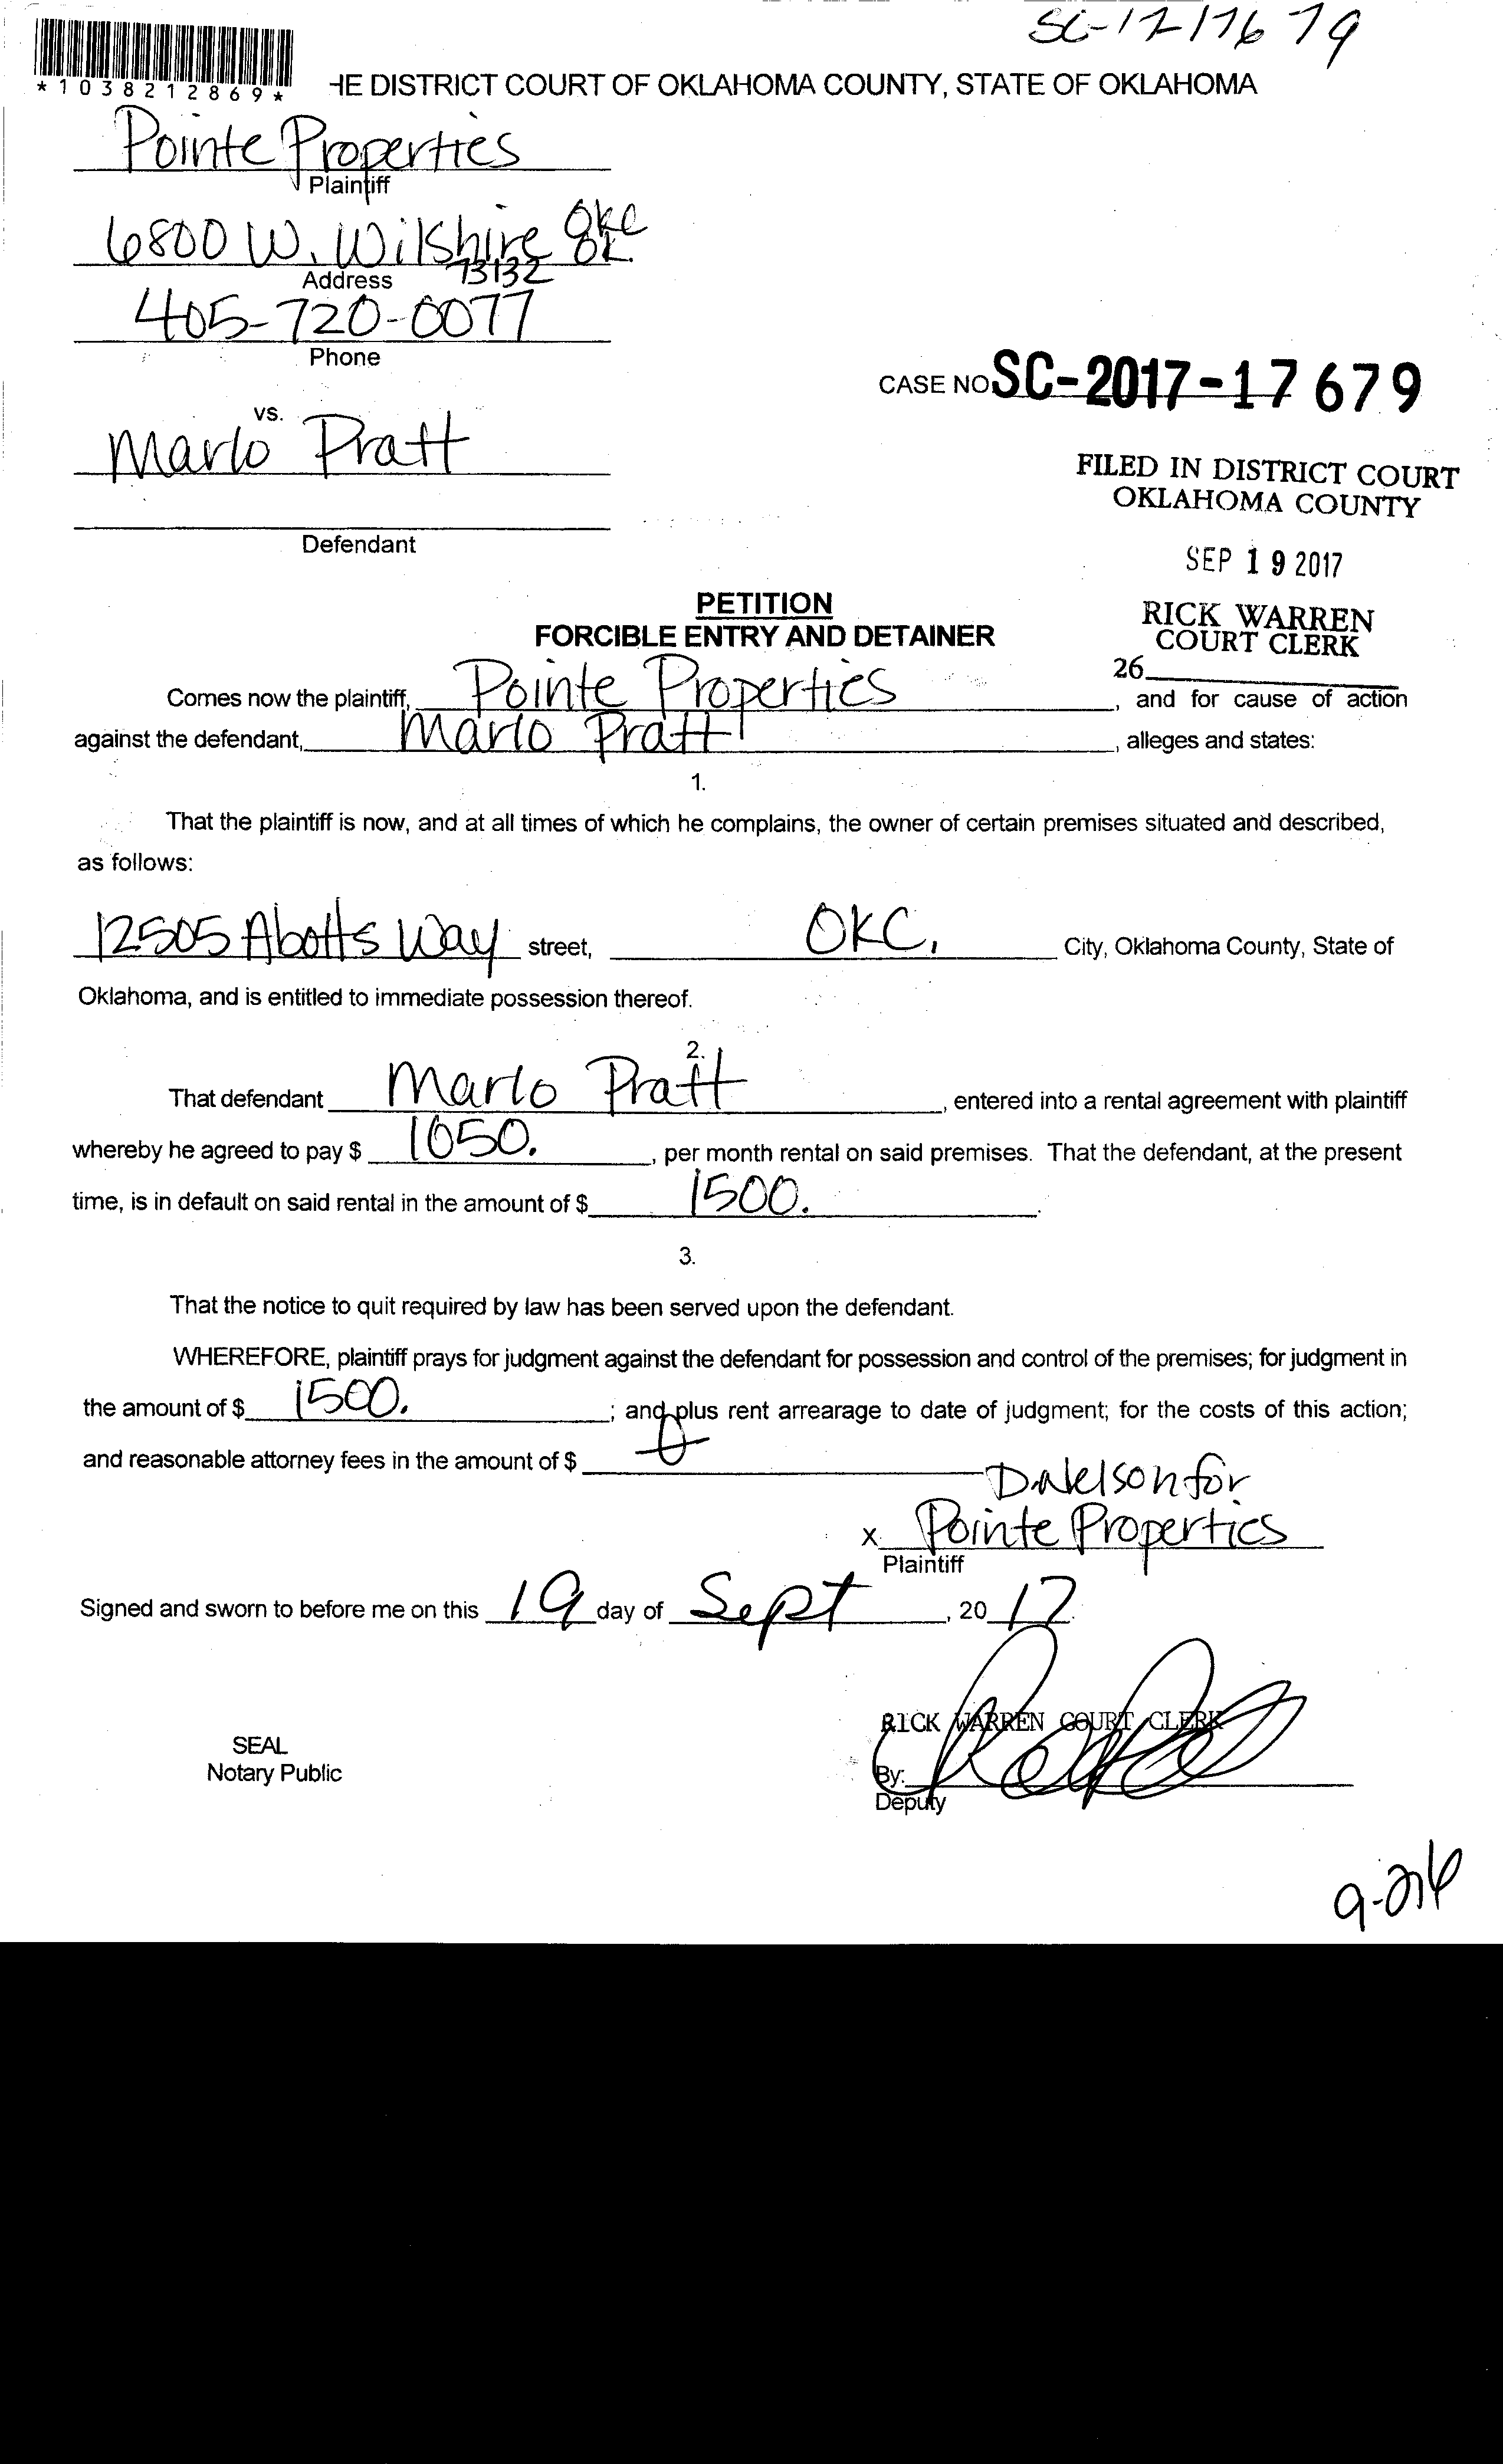 SC-17-17679
*1038212869*
HE DISTRICT COURT OF OKLAHOMA COUNTY, STATE OF OKLAHOMA
Pointe Properties
Plaintiff
6800 W. Wilshire OKC OK.
73132
Address
405-720-0077
Phone
CASE NO SC-2017-17679
vs.
Marlo Pratt
FILED IN DISTRICT COURT
OKLAHOMA COUNTY
Defendant
SEP 19 2017
PETITION
FORCIBLE ENTRY AND DETAINER
RICK WARREN
COURT CLERK
26
Comes now the plaintiff, Pointe Properties, and for cause of action
against the defendant, Marlo Pratt, alleges and states:
1.
That the plaintiff is now, and at all times of which he complains, the owner of certain premises situated and described,
as follows:
12505 Abotts Way street, OKC, City, Oklahoma County, State of
Oklahoma, and is entitled to immediate possession thereof.
2.
That defendant Marlo Pratt, entered into a rental agreement with plaintiff
whereby he agreed to pay $ 1050., per month rental on said premises. That the defendant, at the present
time, is in default on said rental in the amount of $ 1500.
3.
That the notice to quit required by law has been served upon the defendant.
WHEREFORE, plaintiff prays for judgment against the defendant for possession and control of the premises; for judgment in
the amount of $ 1500.; and plus rent arrearage to date of judgment; for the costs of this action;
and reasonable attorney fees in the amount of $ 0
for
x Pointe Properties
Plaintiff
Signed and sworn to before me on this 19 day of Sept, 2017.
RICK WARREN COURT CLERK
SEAL
Notary Public
By:
Deputy